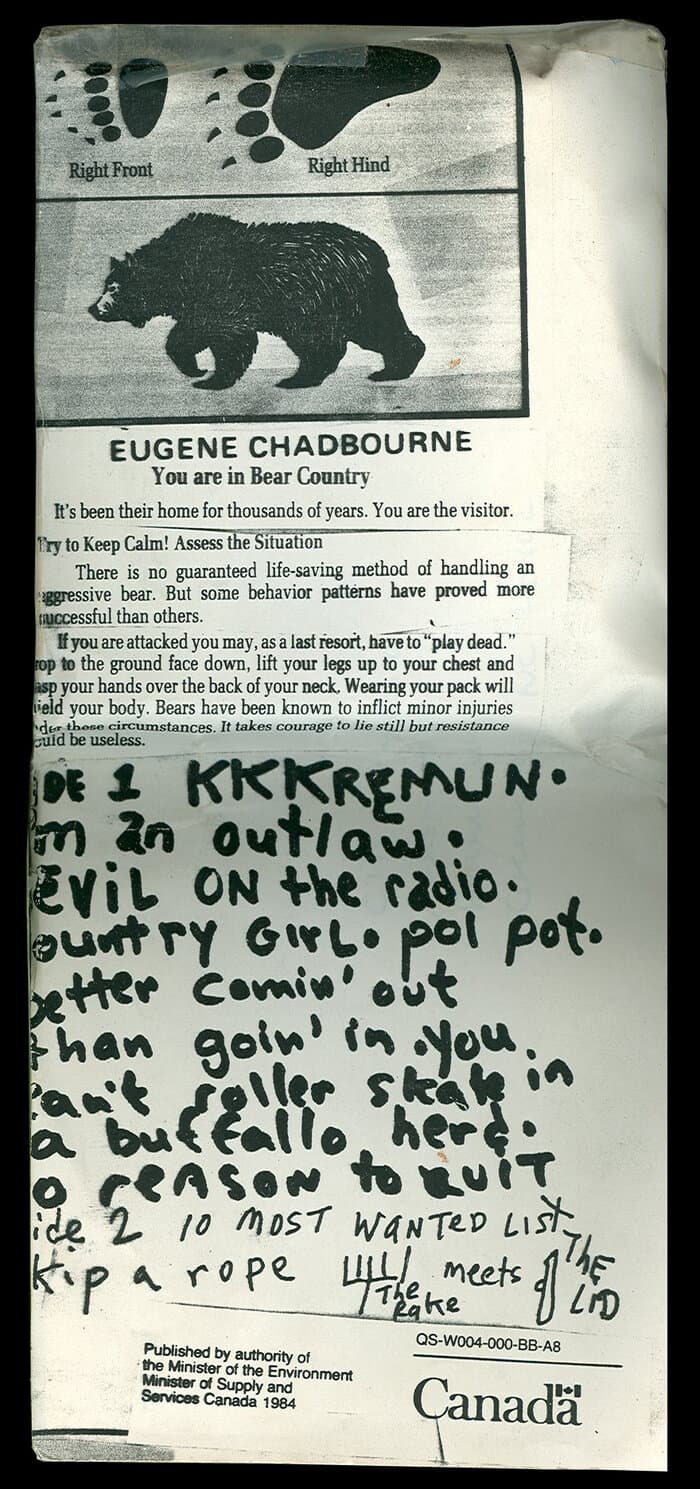 Right Front
Right Hind
EUGENE CHADBOURNE
You are in Bear Country
It's been their home for thousands of years. You are the visitor.
Try to Keep Calm! Assess the Situation
There is no guaranteed life-saving method of handling an
aggressive bear. But some behavior patterns have proved more
successful than others.
If you are attacked you may, as a last resort, have to “play dead.”
rop to the ground face down, lift your legs up to your chest and
asp your hands over the back of your neck. Wearing your pack will
ield your body. Bears have been known to inflict minor injuries
der these circumstances. It takes courage to lie still but resistance
ould be useless.
DE 1 KKKREMLIN.
m an outlaw.
EViL ON the radio.
ountry GirL. pol pot.
etter comin' out
than goin' in. you
an't roller skate in
a buffallo herd.
o reASON to QUIT
ide 2 10 MOST WANTED LIST
kip a rope The Rake meets THE LID
Published by authority of
the Minister of the Environment
Minister of Supply and
Services Canada 1984
QS-W004-000-BB-A8
Canada